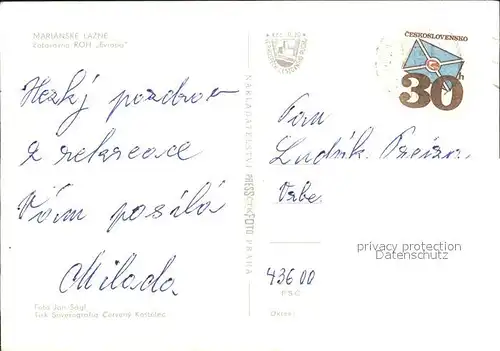 MARIÁNSKÉ LÁZNĚ
Zotavovna ROH „Evropa"
Hezký pozdrav
z rekreace
Vám posílá
Milada
Foto Jan Ságl
Tisk Severografia Červený Kostelec
NAKLADATELSTVÍ PRESSFOTO PRAHA
ČESKOSLOVENSKO
30h
Pan
Ludvík
Vrbe
privacy protection
Datenschutz
43600
PSČ
Okres: